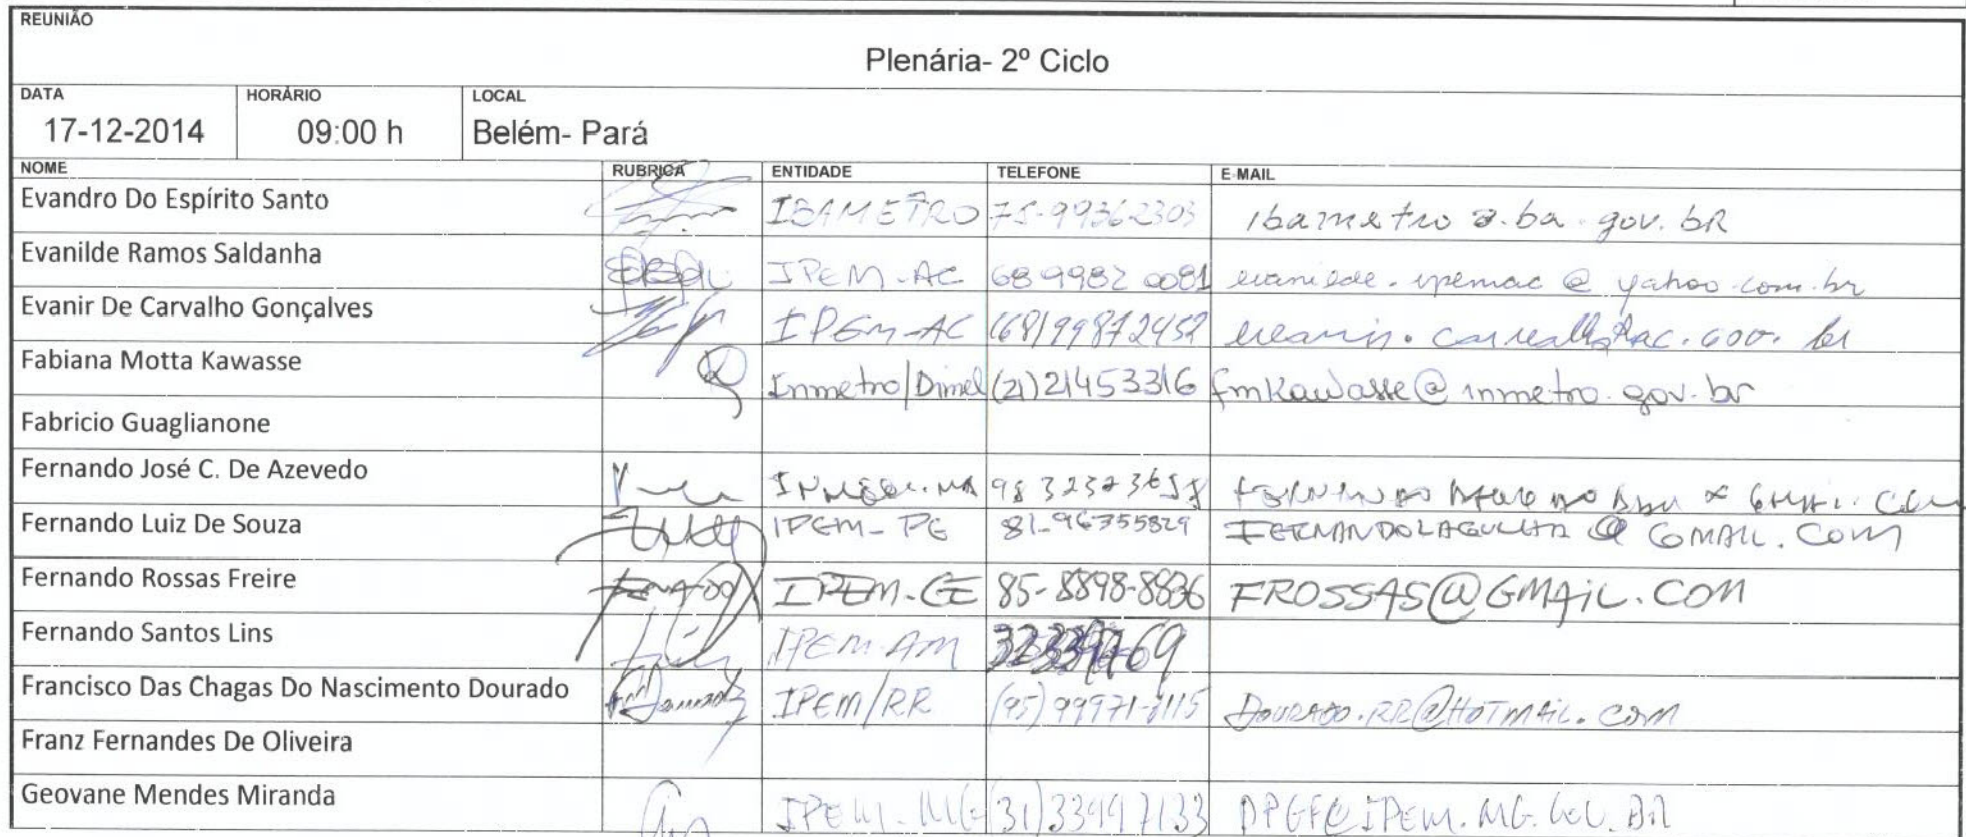 REUNIÃO
Plenária- 2º Ciclo
DATA HORÁRIO LOCAL
17-12-2014 09:00 h Belém- Pará
NOME RUBRICA ENTIDADE TELEFONE E-MAIL
Evandro Do Espírito Santo IBAMETRO 75-99362303 ibametro @.ba.gov.bR
Evanilde Ramos Saldanha IPEM-AC 68 9982 0081 evanilde.ipemac@yahoo.com.br
Evanir De Carvalho Gonçalves IPEM-AC (68)99872452
Fabiana Motta Kawasse Inmetro/Dimel (21)21453316 fmkawasse@inmetro.gov.br
Fabricio Guaglianone
Fernando José C. De Azevedo
Fernando Luiz De Souza IPEM-PE 81-96355829 @GMAIL.COM
Fernando Rossas Freire IPEM-CE 85-8898-8836 FROSSAS@GMAiL.COM
Fernando Santos Lins IPEM-AM
Francisco Das Chagas Do Nascimento Dourado IPEM/RR (95)99971-8115 DOURADO.RR@HOTMAiL.COM
Franz Fernandes De Oliveira
Geovane Mendes Miranda IPEM-MG (31)33997133 DPGF@IPEM.MG.GOV.BR